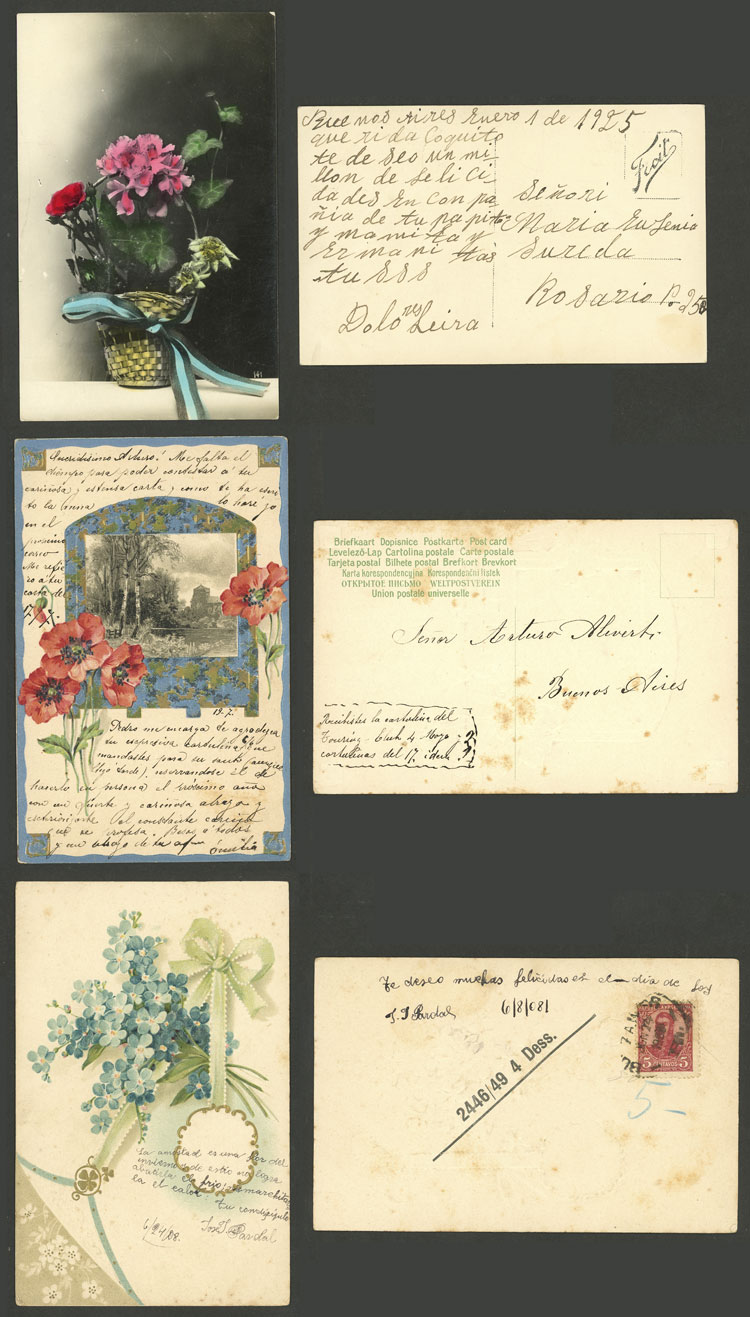 Buenos Aires Enero 1 de 1925
querida Coquito
te de seo un mi-
llon de felici
dades En conpa
ñia de tu papito
y mamita y
Ermani tas
tu SSS
Dolores Leira
Señori
Maria Eugenia
Sureda
Rosario
Arturo! Me falta el
tiempo para poder contestar á tu
cariñosa y estensa carta y como te ha escri
to la mna lo haré yo
en el
proximo
correo
Me refie
ro a tu
carta del
17.7.
19.7.
Pedro me encarga te agradezca
tu espresiva cartulina que
mandastes para su santo (aunque
llegó tarde), reservandose el de
hacerlo en persona el proximo año
con un fuerte y cariñoso abrazo y
el constante cariño
que te profesa. Besos á todos
y un abrazo de tu Emilia
Briefkaart Dopisnice Postkarte Post card
Levelező-Lap Cartolina postale Carte postale
Tarjeta postal Bilhete postal Brefkort Brevkort
Karta korespondencyjna Korespondenční lístek
ОТКРЫТОЕ ПИСЬМО WELTPOSTVEREIN
Union postale universelle
Senor Arturo Aliverti
Buenos Aires
Recibistes la cartolina del
Touring Club 4 Mayo
cartulinas del 17. idem
La amistad es una flor del
invierno de estio no logra
abatirla El frio ni marchitar
la el calor
tu condiscipulo
6/24/08. José J Pardal
Te deseo muchas felicidades el dia de
J. J Pardal 6/8/081
2446/49 4 Dess.
7 AM
5 CENTAVOS 5
5-